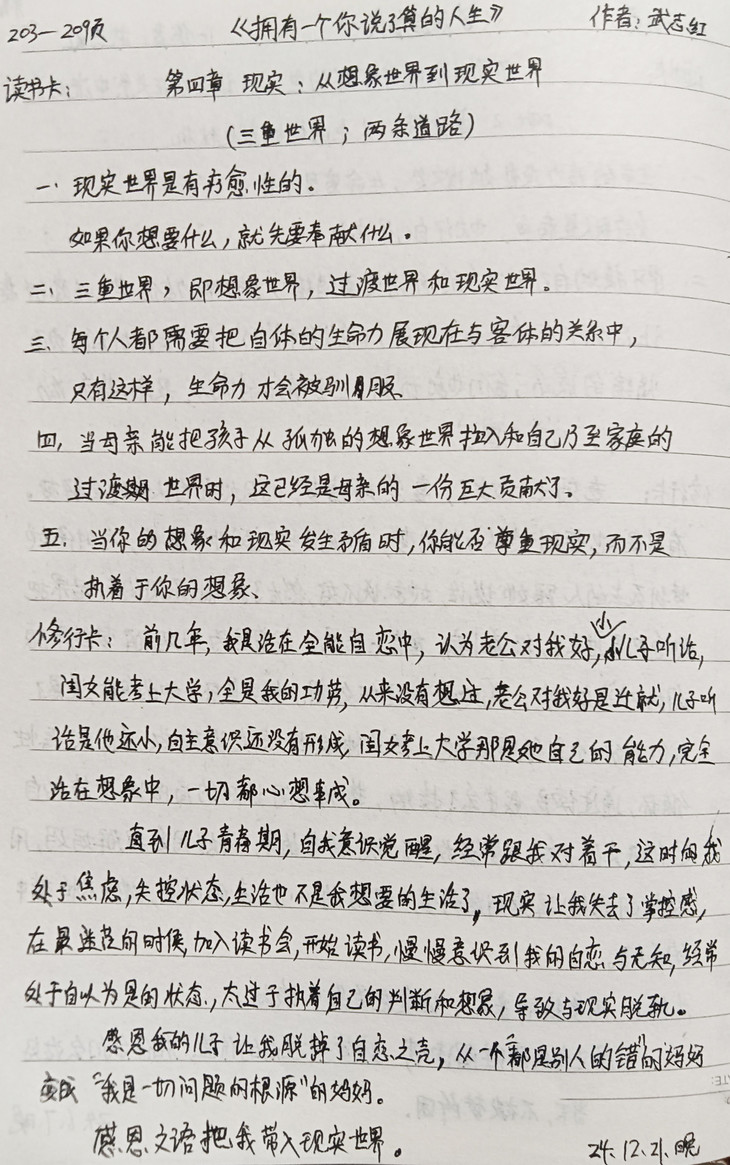 203—209页 《拥有一个你说了算的人生》 作者：武志红
读书卡： 第四章 现实：从想象世界到现实世界
（三重世界；两条道路）
一、现实世界是有疗愈性的。
如果你想要什么，就先要奉献什么。
二、三重世界，即想象世界，过渡世界和现实世界。
三、每个人都需要把自体的生命力展现在与客体的关系中，
只有这样，生命力才会被驯服、
四、当母亲能把孩子从孤独的想象世界拉入和自己乃至家庭的
过渡期世界时，这已经是母亲的一份巨大贡献了。
五、当你的想象和现实发生矛盾时，你能否尊重现实，而不是
执着于你的想象、
修行卡：前几年，我是活在全能自恋中，认为老公对我好，小儿子听话，
闺女能考上大学，全是我的功劳，从来没有想过，老公对我好是迁就，儿子听
话是他还小，自主意识还没有形成，闺女考上大学那是她自己的能力，完全
活在想象中，一切都心想事成。
直到儿子青春期，自我意识觉醒，经常跟我对着干，这时间我
处于焦虑，失控状态，生活也不是我想要的生活了，现实让我失去了掌控感，
在最迷茫的时候，加入读书会，开始读书，慢慢意识到我的自恋与无知，经常
处于自以为是的状态，太过于执着自己的判断和想象，导致与现实脱轨。
感恩我的儿子让我脱掉了自恋之壳，从一个“都是别人的错”的妈妈
变成“我是一切问题的根源”的妈妈。
感恩文语把我带入现实世界。
24.12.21.晚